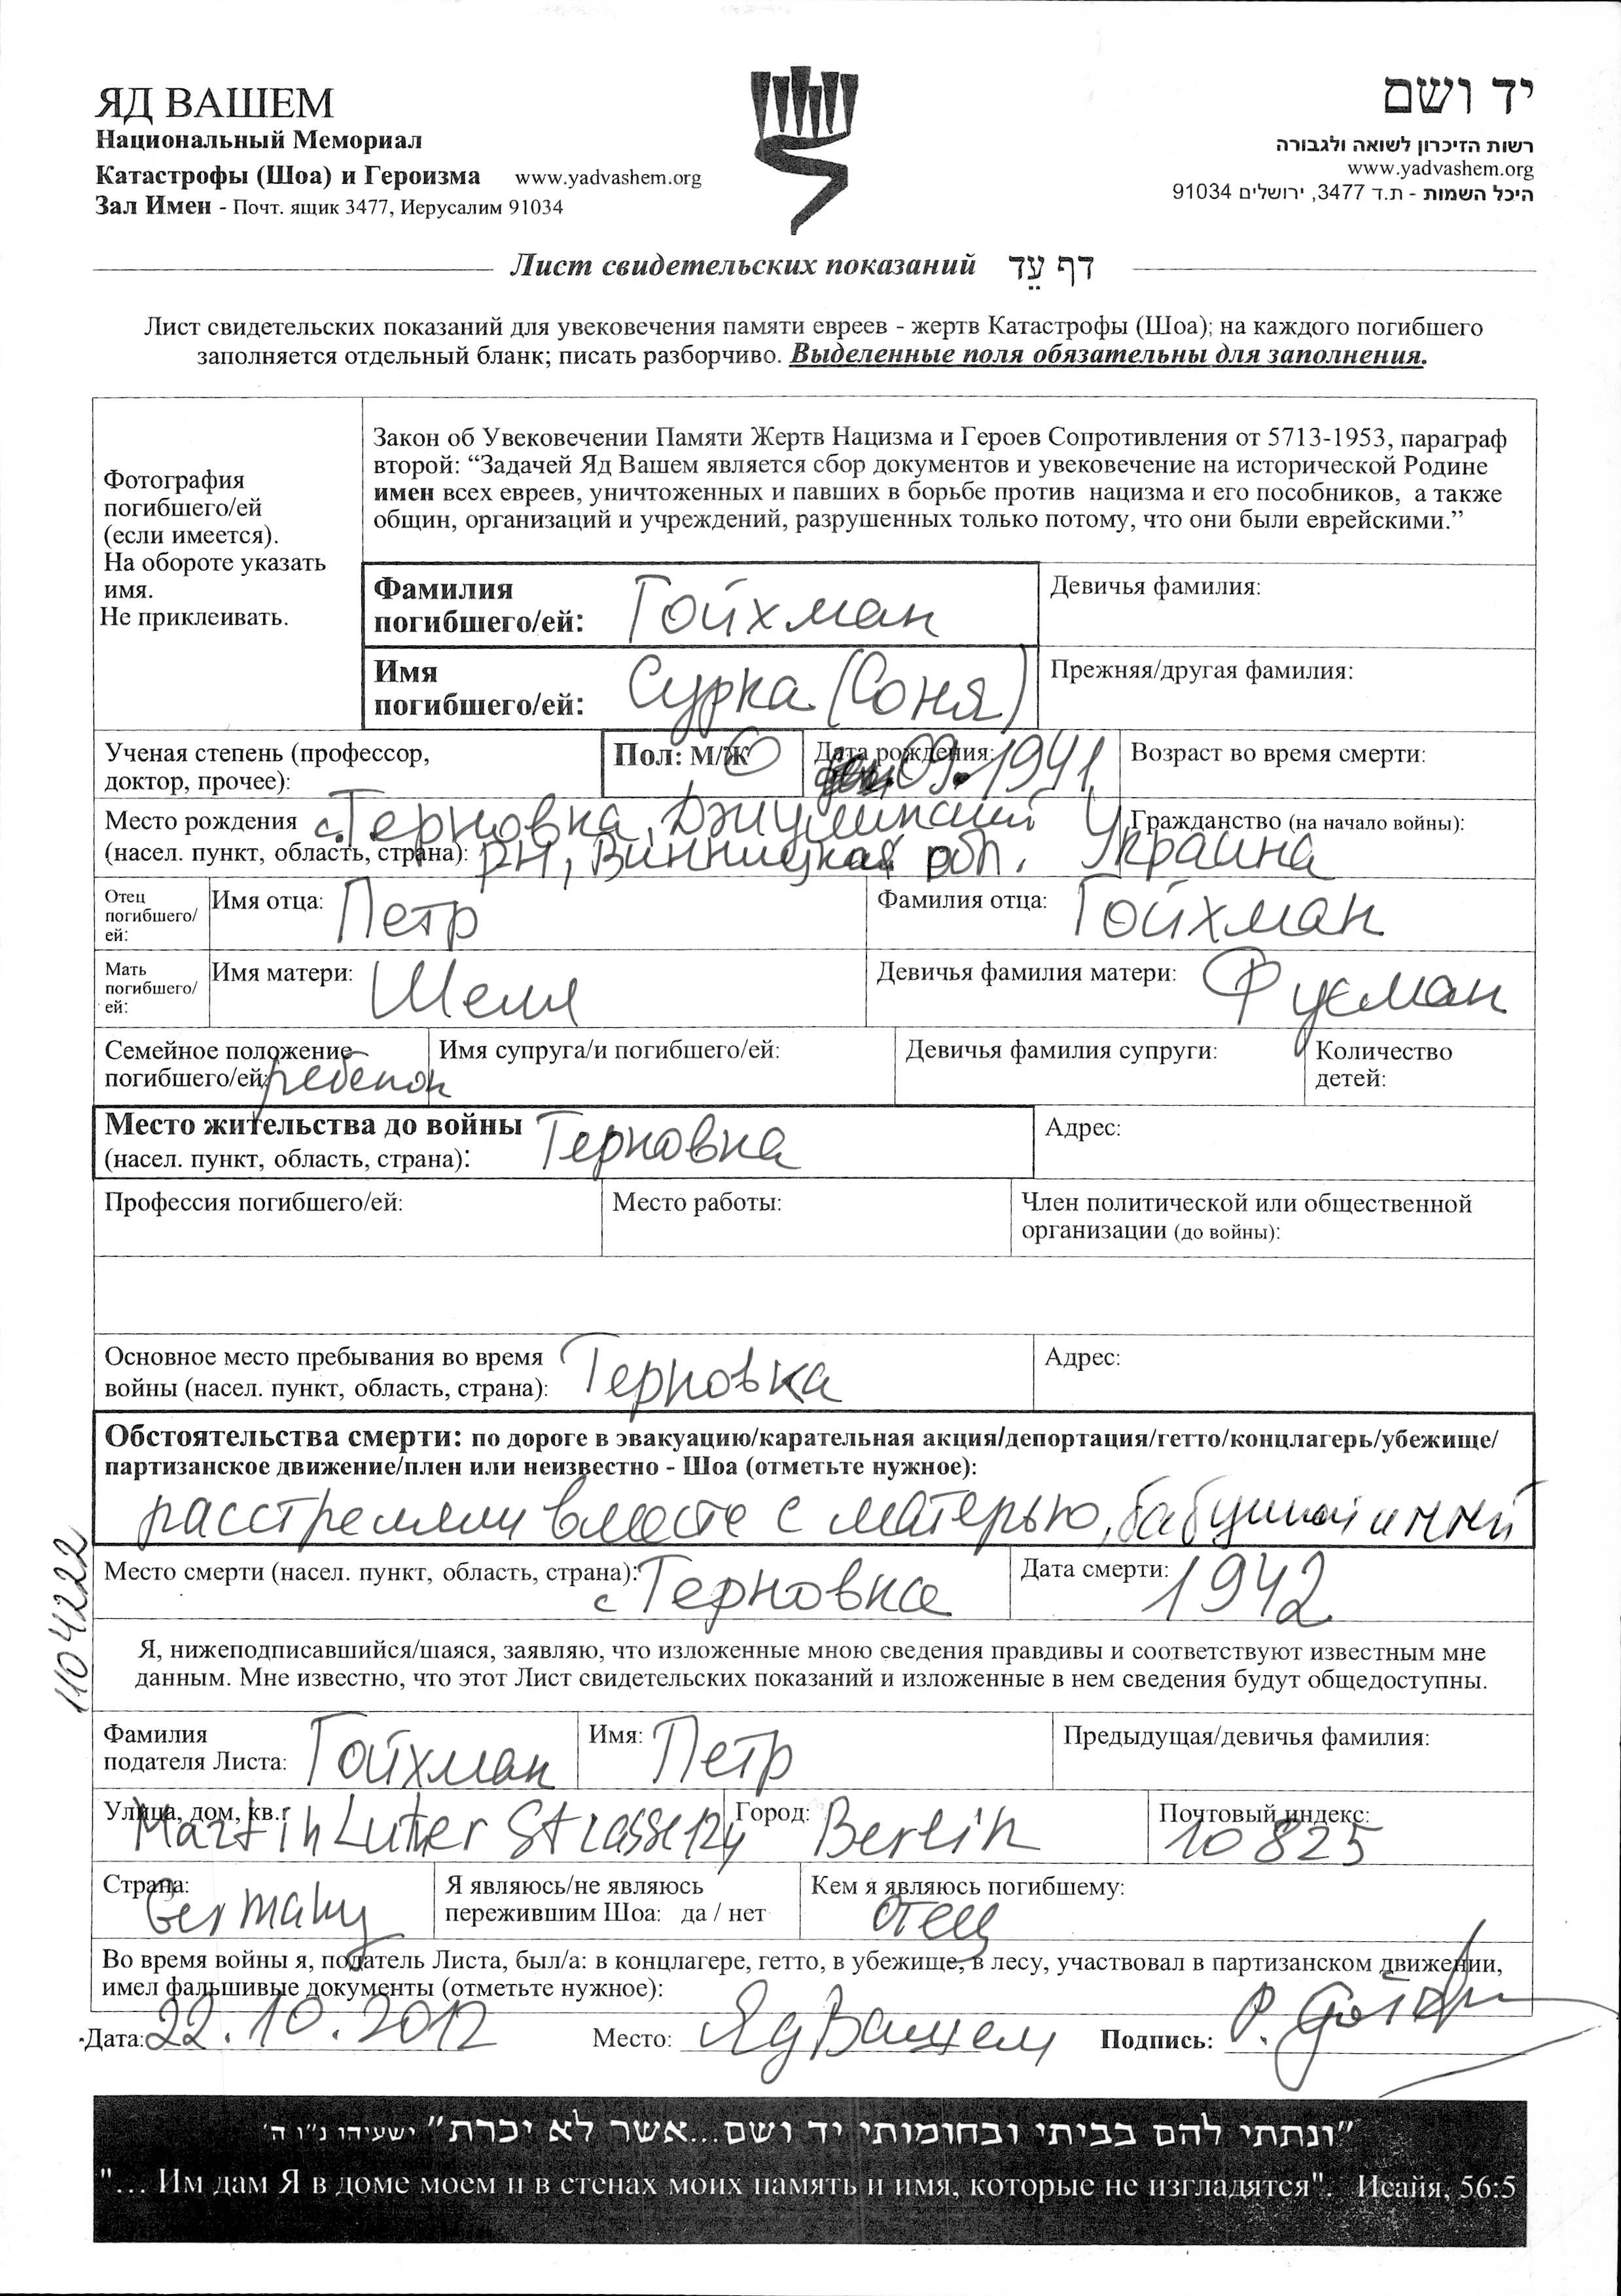 ЯД ВАШЕМ
Национальный Мемориал
Катастрофы (Шоа) и Героизма www.yadvashem.org
Зал Имен - Почт. ящик 3477, Иерусалим 91034
יד ושם
רשות הזיכרון לשואה ולגבורה
www.yadvashem.org
היכל השמות - ת.ד 3477, ירושלים 91034
Лист свидетельских показаний דף עֵד
Лист свидетельских показаний для увековечения памяти евреев - жертв Катастрофы (Шоа); на каждого погибшего
заполняется отдельный бланк; писать разборчиво. Выделенные поля обязательны для заполнения.
Фотография
погибшего/ей
(если имеется).
На обороте указать
имя.
Не приклеивать.
Закон об Увековечении Памяти Жертв Нацизма и Героев Сопротивления от 5713-1953, параграф
второй: “Задачей Яд Вашем является сбор документов и увековечение на исторической Родине
имен всех евреев, уничтоженных и павших в борьбе против нацизма и его пособников, а также
общин, организаций и учреждений, разрушенных только потому, что они были еврейскими.”
Фамилия
погибшего/ей: Гойхман
Девичья фамилия:
Имя
погибшего/ей: Сурка (Соня)
Прежняя/другая фамилия:
Ученая степень (профессор,
доктор, прочее):
Пол: М/Ж
Дата рождения:
09.1941
Возраст во время смерти:
Место рождения с. Терновка, Джулинский
(насел. пункт, область, страна): рн, Винницкая обл. Украина
Гражданство (на начало войны):
Отец
погибшего/
ей:
Имя отца: Петр
Фамилия отца: Гойхман
Мать
погибшего/
ей:
Имя матери: Шеля
Девичья фамилия матери: Фуксман
Семейное положение
погибшего/ей: ребенок
Имя супруга/и погибшего/ей:
Девичья фамилия супруги:
Количество
детей:
Место жительства до войны
(насел. пункт, область, страна): Терновка
Адрес:
Профессия погибшего/ей:
Место работы:
Член политической или общественной
организации (до войны):
Основное место пребывания во время
войны (насел. пункт, область, страна): Терновка
Адрес:
Обстоятельства смерти: по дороге в эвакуацию/карательная акция/депортация/гетто/концлагерь/убежище/
партизанское движение/плен или неизвестно - Шоа (отметьте нужное):
расстреляли вместе с матерью, бабушкой и
Место смерти (насел. пункт, область, страна): с Терновка
Дата смерти: 1942
1104222
Я, нижеподписавшийся/шаяся, заявляю, что изложенные мною сведения правдивы и соответствуют известным мне
данным. Мне известно, что этот Лист свидетельских показаний и изложенные в нем сведения будут общедоступны.
Фамилия
подателя Листа: Гойхман
Имя: Петр
Предыдущая/девичья фамилия:
Улица, дом, кв.:
Martin Luter Strasse 124
Город: Berlin
Почтовый индекс:
10825
Страна:
Germany
Я являюсь/не являюсь
пережившим Шоа: да / нет
Кем я являюсь погибшему:
отец
Во время войны я, податель Листа, был/а: в концлагере, гетто, в убежище, в лесу, участвовал в партизанском движении,
имел фальшивые документы (отметьте нужное):
Дата: 22.10.2012 Место: Яд Вашем Подпись:
"ונתתי להם בביתי ובחומותי יד ושם...אשר לא יכרת" ישעיהו נ"ו ה'
"... Им дам Я в доме моем и в стенах моих память и имя, которые не изгладятся". Исайя, 56:5